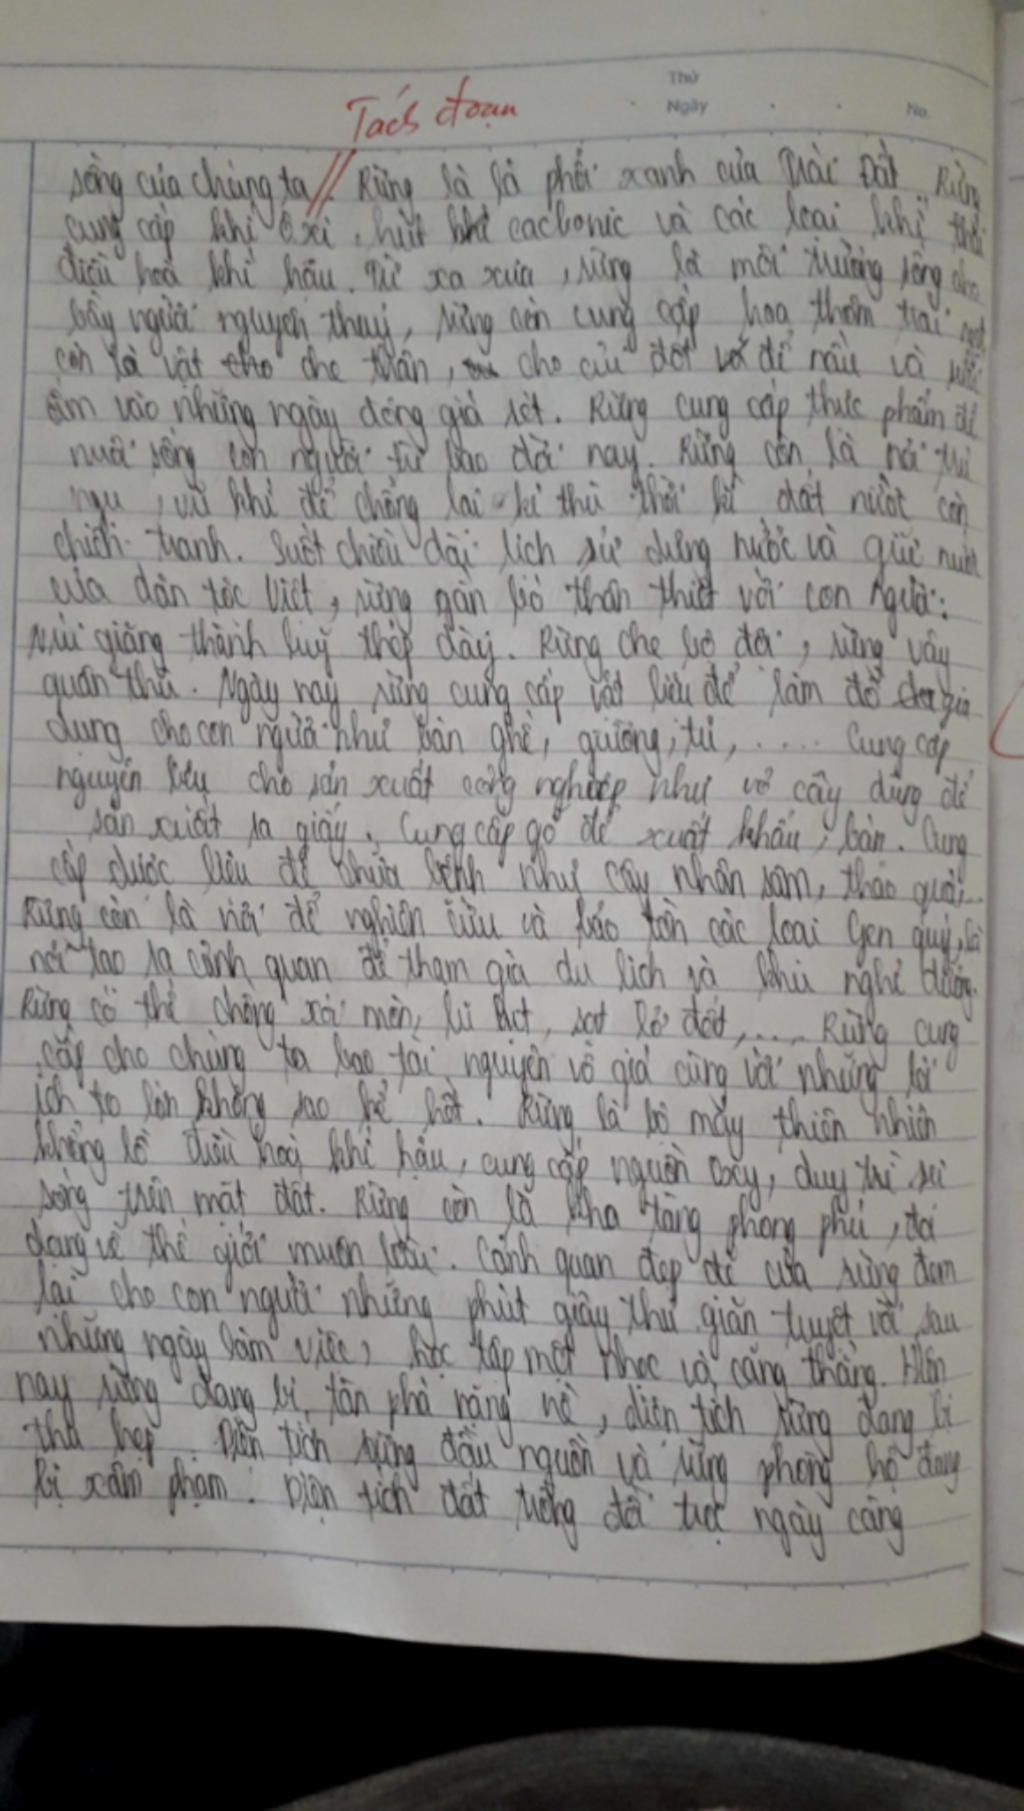 Thứ
Tách đoạn
Ngày No.
sống của chúng ta // Rừng là lá phổi xanh của Trái Đất. Rừng
cung cấp khí ôxi, hút khí cacbonic và các loại khí thải
điều hoà khí hậu. Từ xa xưa, rừng là môi trường sống cho
bầy người nguyên thuỷ, rừng còn cung cấp hoa thơm trái ngọt
còn là vật che thân, cho củi đốt để nấu và sưởi
ấm vào những ngày đông giá rét. Rừng cung cấp thực phẩm để
nuôi sống con người từ bao đời nay. Rừng còn là nơi trú
ngụ, vũ khí để chống lại kẻ thù thời kì đất nước còn
chiến tranh. Suốt chiều dài lịch sử dựng nước và giữ nước
của dân tộc Việt, rừng gắn bó thân thiết với con người:
Núi giăng thành luỹ thép dày. Rừng che bộ đội, rừng vây
quân thù. Ngày nay rừng cung cấp vật liệu để làm đồ gia
dụng cho con người như bàn ghế, giường, tủ, ..... Cung cấp
nguyên liệu cho sản xuất công nghiệp như vỏ cây dùng để
sản xuất ra giấy. Cung cấp gỗ để xuất khẩu, bán. Cung
cấp dược liệu để chữa bệnh như cây nhân sâm, thảo quả...
Rừng còn là nơi để nghiên cứu và bảo tồn các loại gen quý, là
nơi tạo ra cảnh quan để tham gia du lịch và khu nghỉ dưỡng.
Rừng có thể chống xói mòn, lũ lụt, sạt lở đất, .... Rừng cung
cấp cho chúng ta bao tài nguyên vô giá cùng với những lợi
ích to lớn không sao kể hết. Rừng là bộ máy thiên nhiên
khổng lồ điều hoà khí hậu, cung cấp nguồn oxy, duy trì sự
sống trên mặt đất. Rừng còn là kho tàng phong phú, đa
dạng về thế giới muôn loài. Cảnh quan đẹp đẽ của rừng đem
lại cho con người những phút giây thư giãn tuyệt vời sau
những ngày làm việc, học tập mệt nhọc và căng thẳng. Hiện
nay rừng đang bị tàn phá nặng nề, diện tích rừng đang bị
thu hẹp. Diện tích rừng đầu nguồn và rừng phòng hộ đang
bị xâm phạm. Diện tích đất trống đồi trọc ngày càng